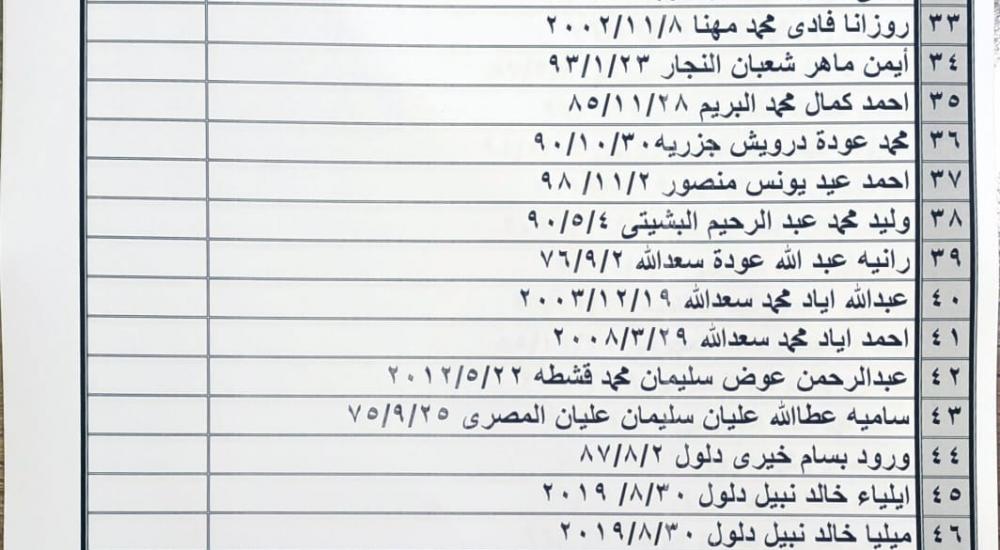 ٣٣ روزانا فادى محمد مهنا ٢٠٠٢/١١/٨
٣٤ أيمن ماهر شعبان النجار ٩٣/١/٢٣
٣٥ احمد كمال محمد البريم ٨٥/١١/٢٨
٣٦ محمد عودة درويش جزريه٩٠/١٠/٣٠
٣٧ احمد عيد يونس منصور ٩٨/١١/٢
٣٨ وليد محمد عبد الرحيم البشيتى ٩٠/٥/٤
٣٩ رانيه عبد الله عودة سعدالله ٧٦/٩/٢
٤٠ عبدالله اياد محمد سعدالله ٢٠٠٣/١٢/١٩
٤١ احمد اياد محمد سعدالله ٢٠٠٨/٣/٢٩
٤٢ عبدالرحمن عوض سليمان محمد قشطه ٢٠١٢/٥/٢٢
٤٣ ساميه عطاالله عليان سليمان عليان المصرى ٧٥/٩/٢٥
٤٤ ورود بسام خيرى دلول ٨٧/٨/٢
٤٥ ايلياء خالد نبيل دلول ٢٠١٩ /٨/٣٠
٤٦ ميليا خالد نبيل دلول ٢٠١٩/٨/٣٠